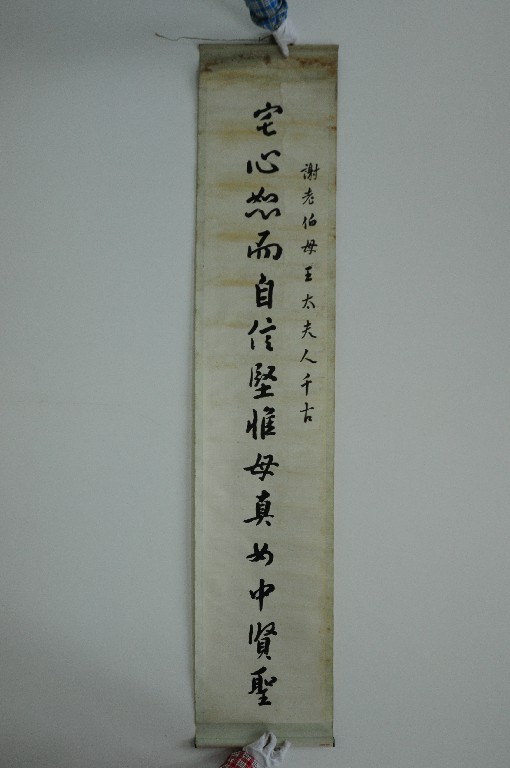 謝老伯母王太夫人千古
宅心恕而自信堅惟母真女中賢聖